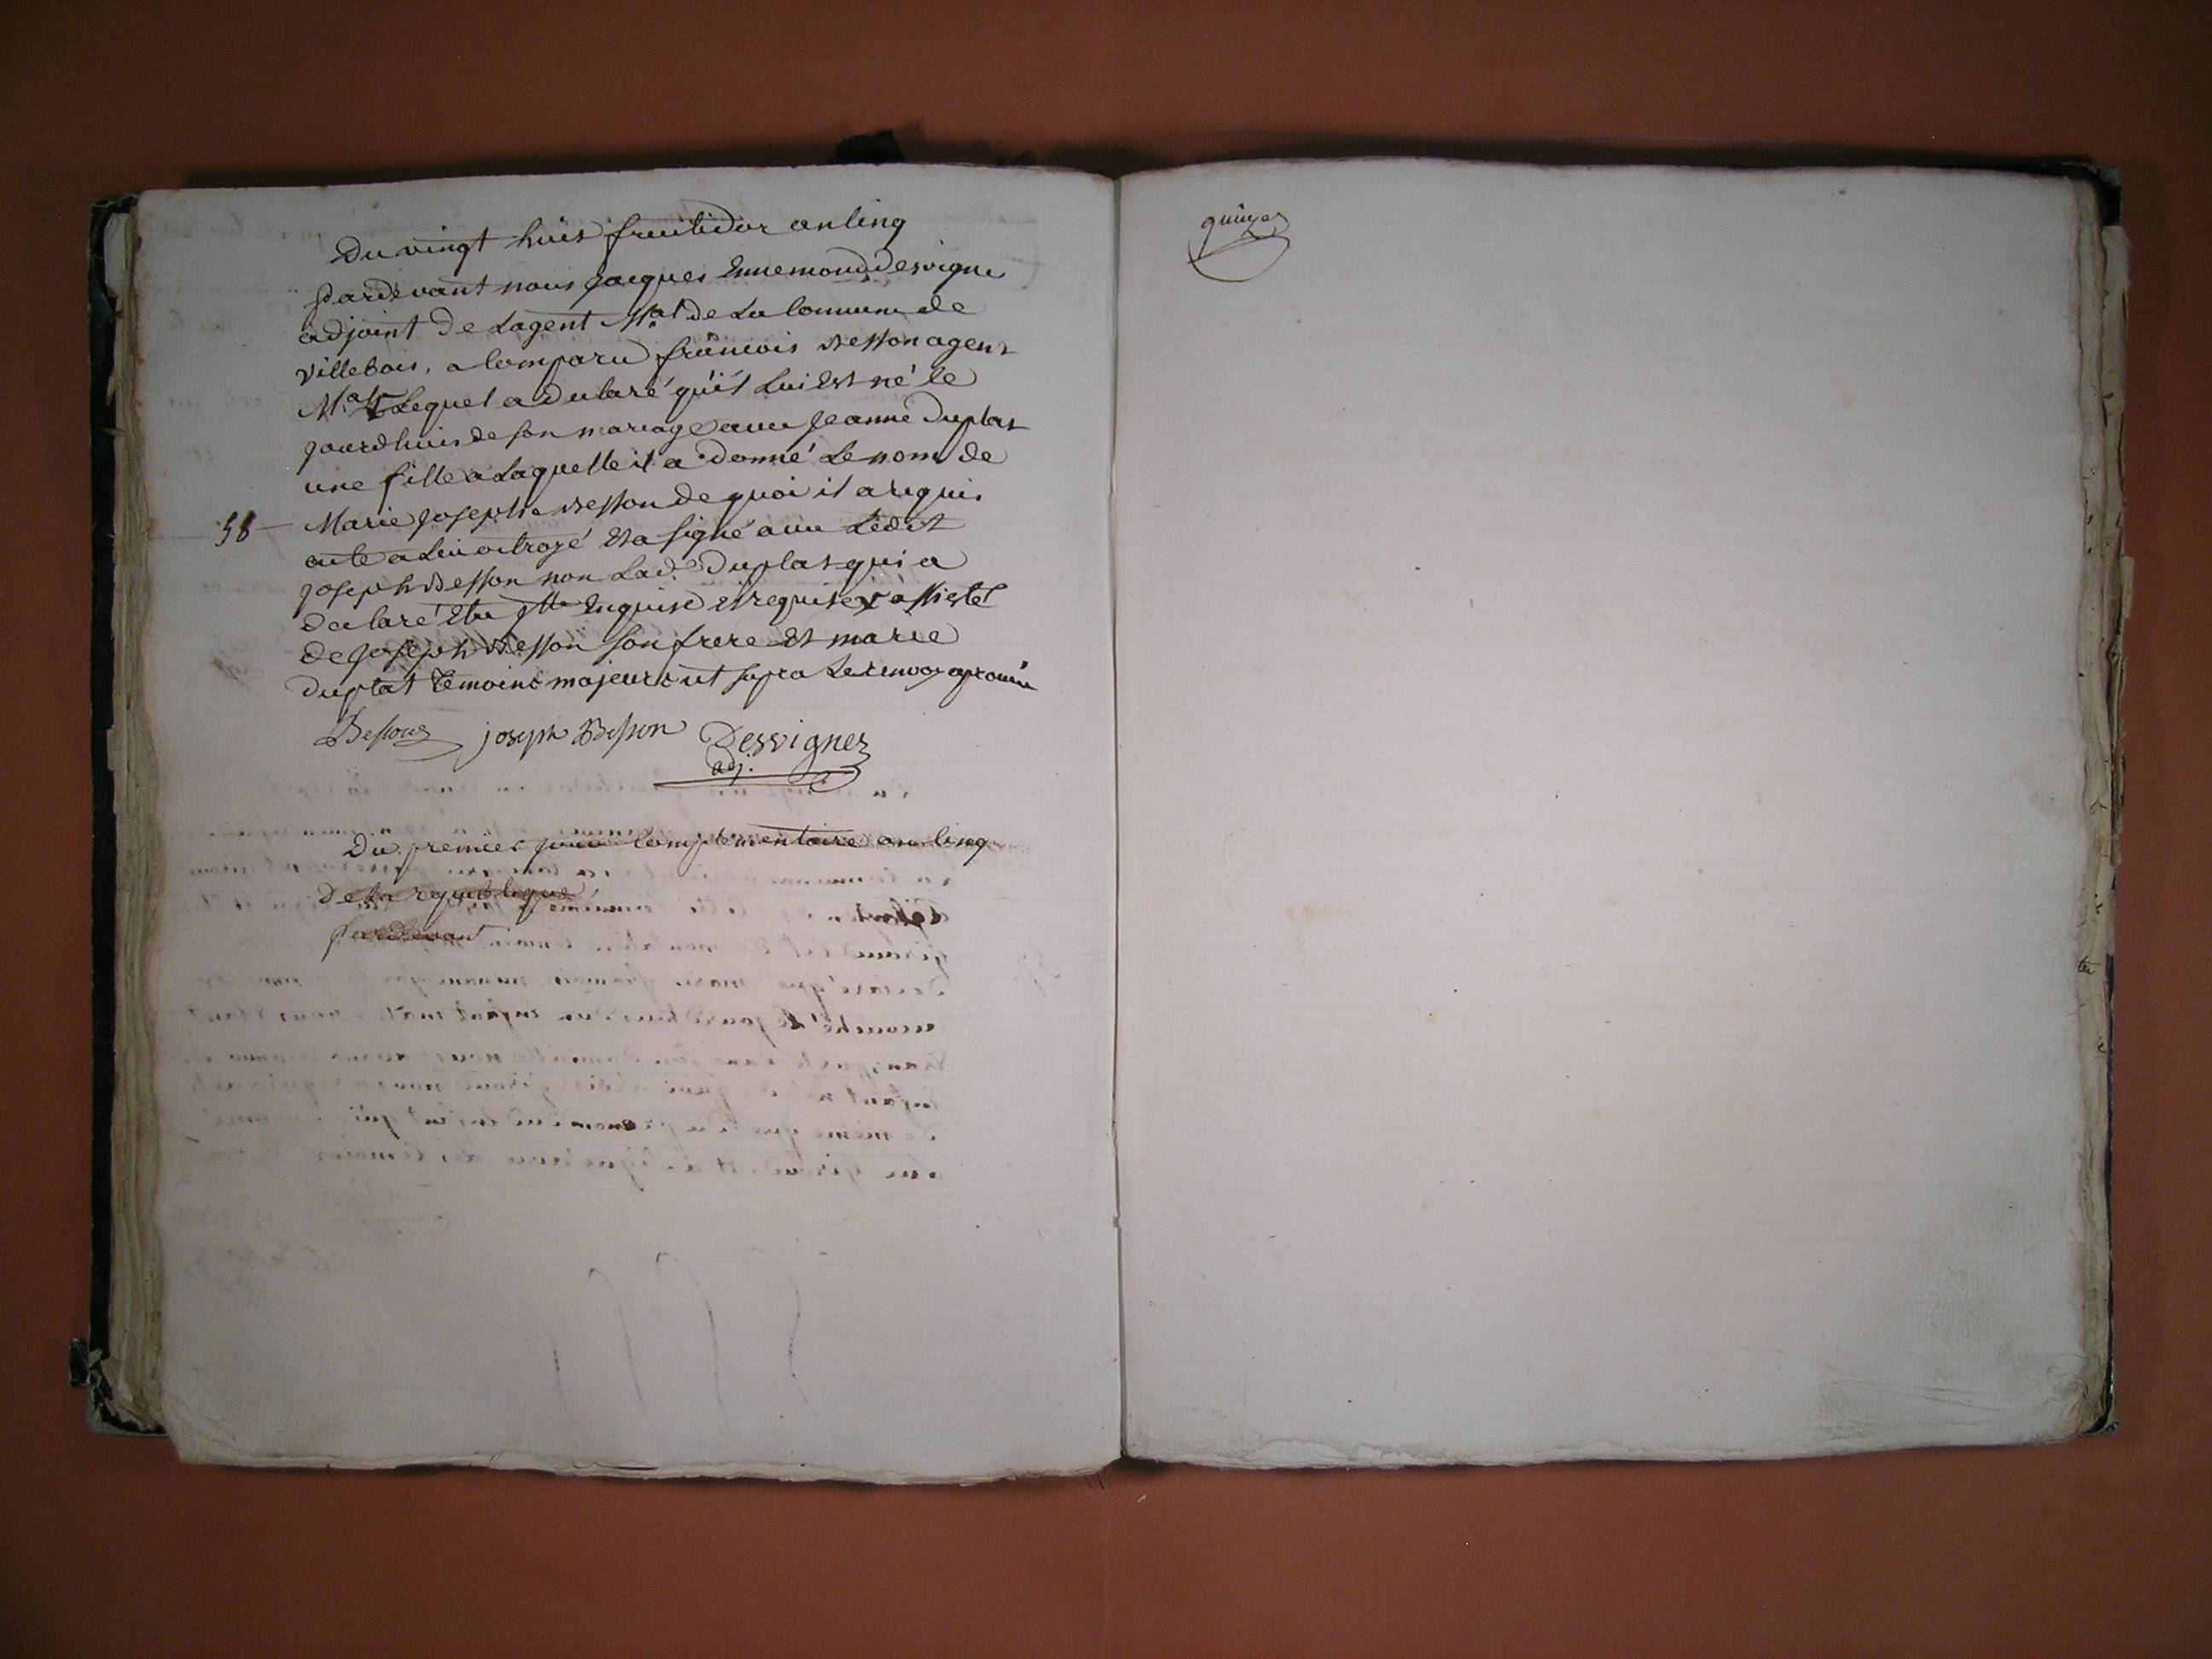 Du vingt huit fructidor an cinq
Pardevant nous Jacques Ennemond Desvigne
adjoint de Lagent M.al de La Commune de
villebois, a Comparu francois Besson agent
M.al Lequel a déclaré qu'il Lui Est né le
jourdhuis de son mariage avec Jeanne Duplat
une fille a Laquelle il a donné Le nom de
58 Marie Josephte Besson de quoi il a requis
acte a Lui octroyé Et a signé avec Ledit
joseph Besson non Lad.e Duplat qui a
declaré Etre jlle Enquise et requise x assisté
de joseph Besson son frere Et marie
duplat témoins majeurs ut supra Le renvoy aprouvé
Besson joseph Besson Desvignes
adj.
Du premier jour Complementaire an Cinq
De La republique
Pardevant
quinze